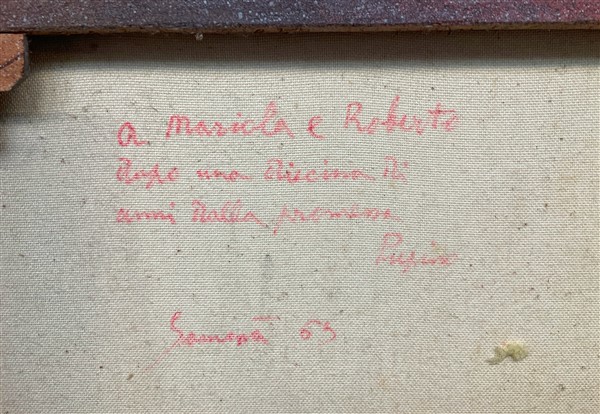 a Mariola e Roberto
Dopo una diecina di
anni dalla promessa
Pupino
63